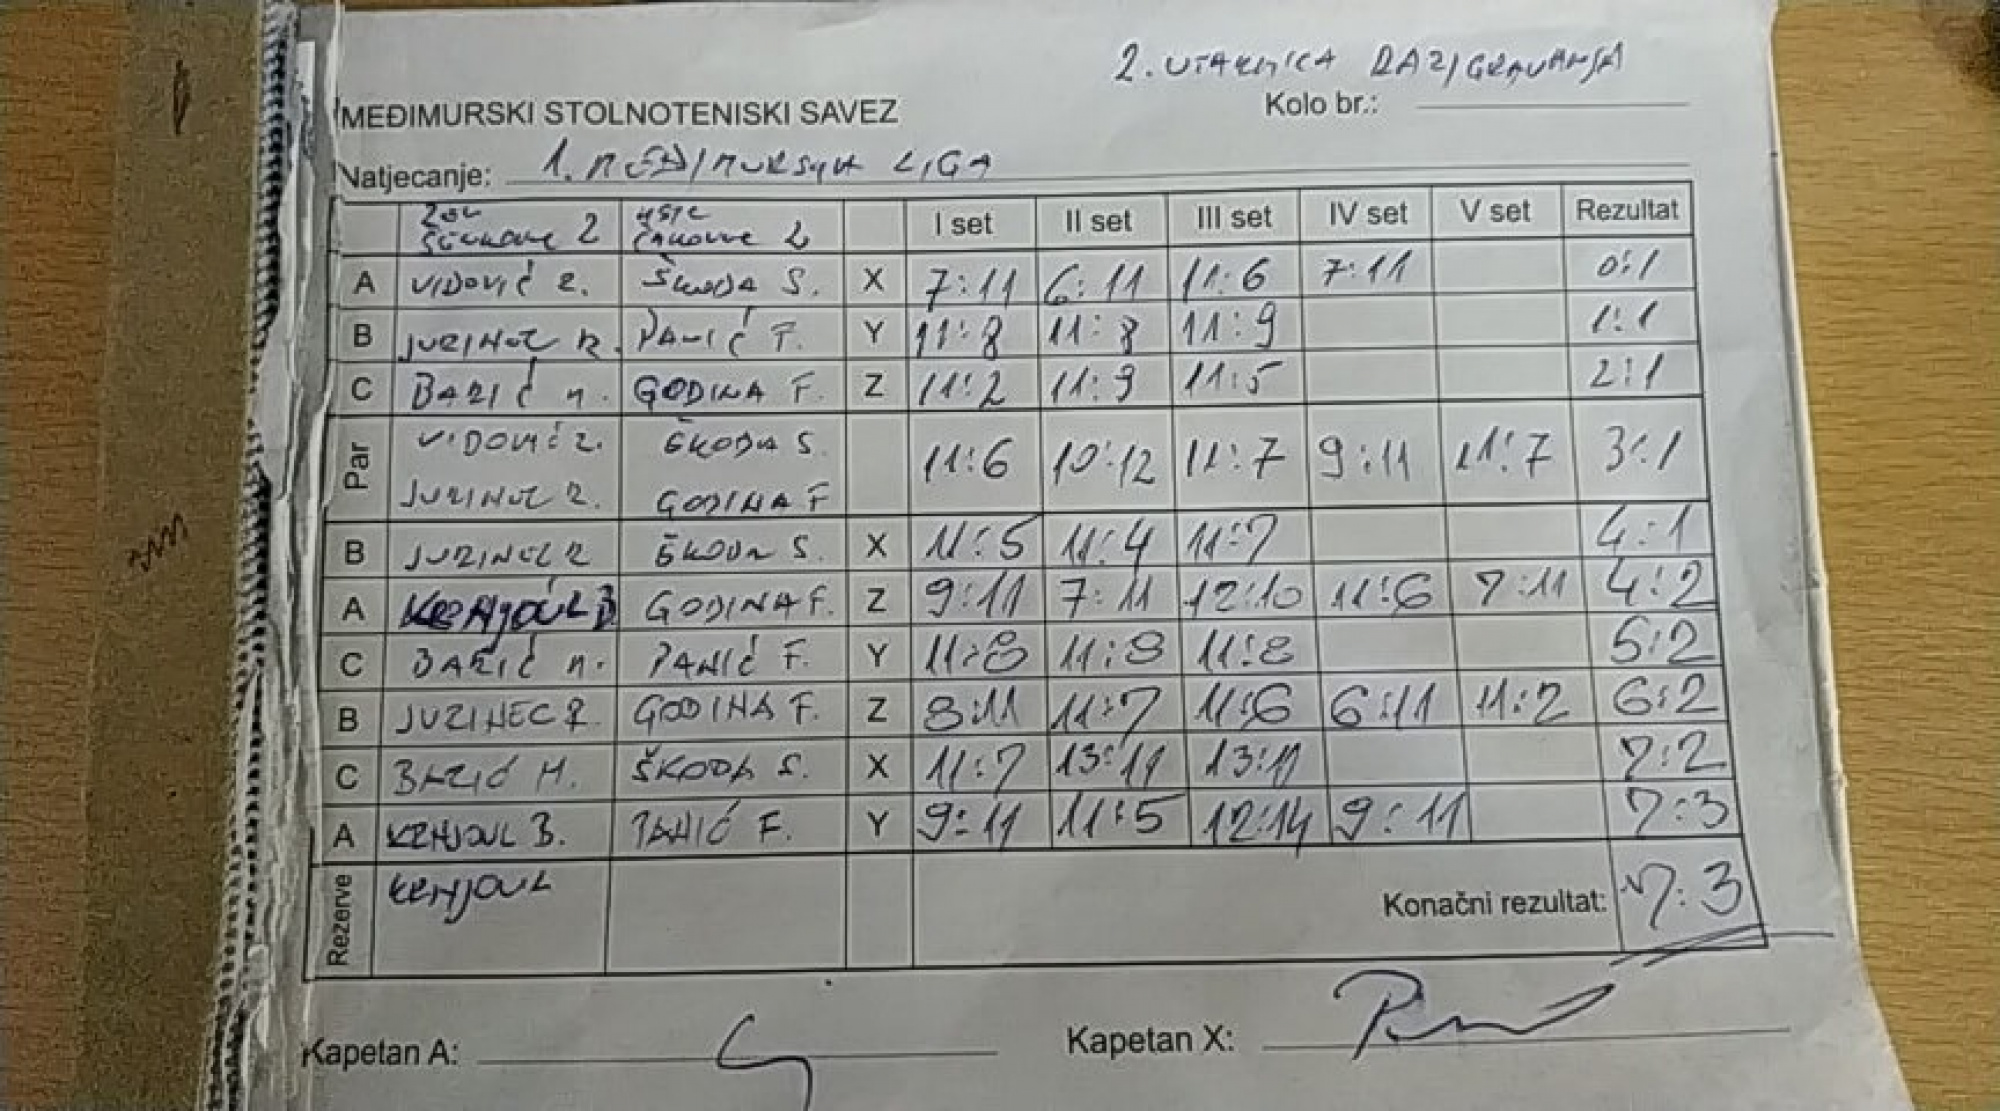 2. UTAKMICA RAZIGRAVANJA
MEĐIMURSKI STOLNOTENISKI SAVEZ
Kolo br.:
Natjecanje: 1. MEĐIMURSKA LIGA
2 2 I set II set III set IV set V set Rezultat
A VIDOVIĆ Z. ŠKODA S. X 7:11 6:11 11:6 7:11 0:1
B JURINEC R. PANIĆ F. Y 11:8 11:8 11:9 1:1
C BARIĆ M. GODINA F. Z 11:2 11:9 11:5 2:1
Par VIDOVIĆ Z. ŠKODA S. 11:6 10:12 11:7 9:11 11:7 3:1
JURINEC R. GODINA F
B JURINEC R ŠKODA S. X 11:5 11:4 11:7 4:1
A B GODINA F. Z 9:11 7:11 12:10 11:6 7:11 4:2
C BARIĆ M. PANIĆ F. Y 11:8 11:8 11:8 5:2
B JURINEC R. GODINA F. Z 8:11 11:7 11:6 6:11 11:2 6:2
C BARIĆ M. ŠKODA S. X 11:7 13:11 13:11 7:2
A B. PANIĆ F. Y 9:11 11:5 12:14 9:11 7:3
Rezerve Konačni rezultat: 7:3
Kapetan A: Kapetan X: